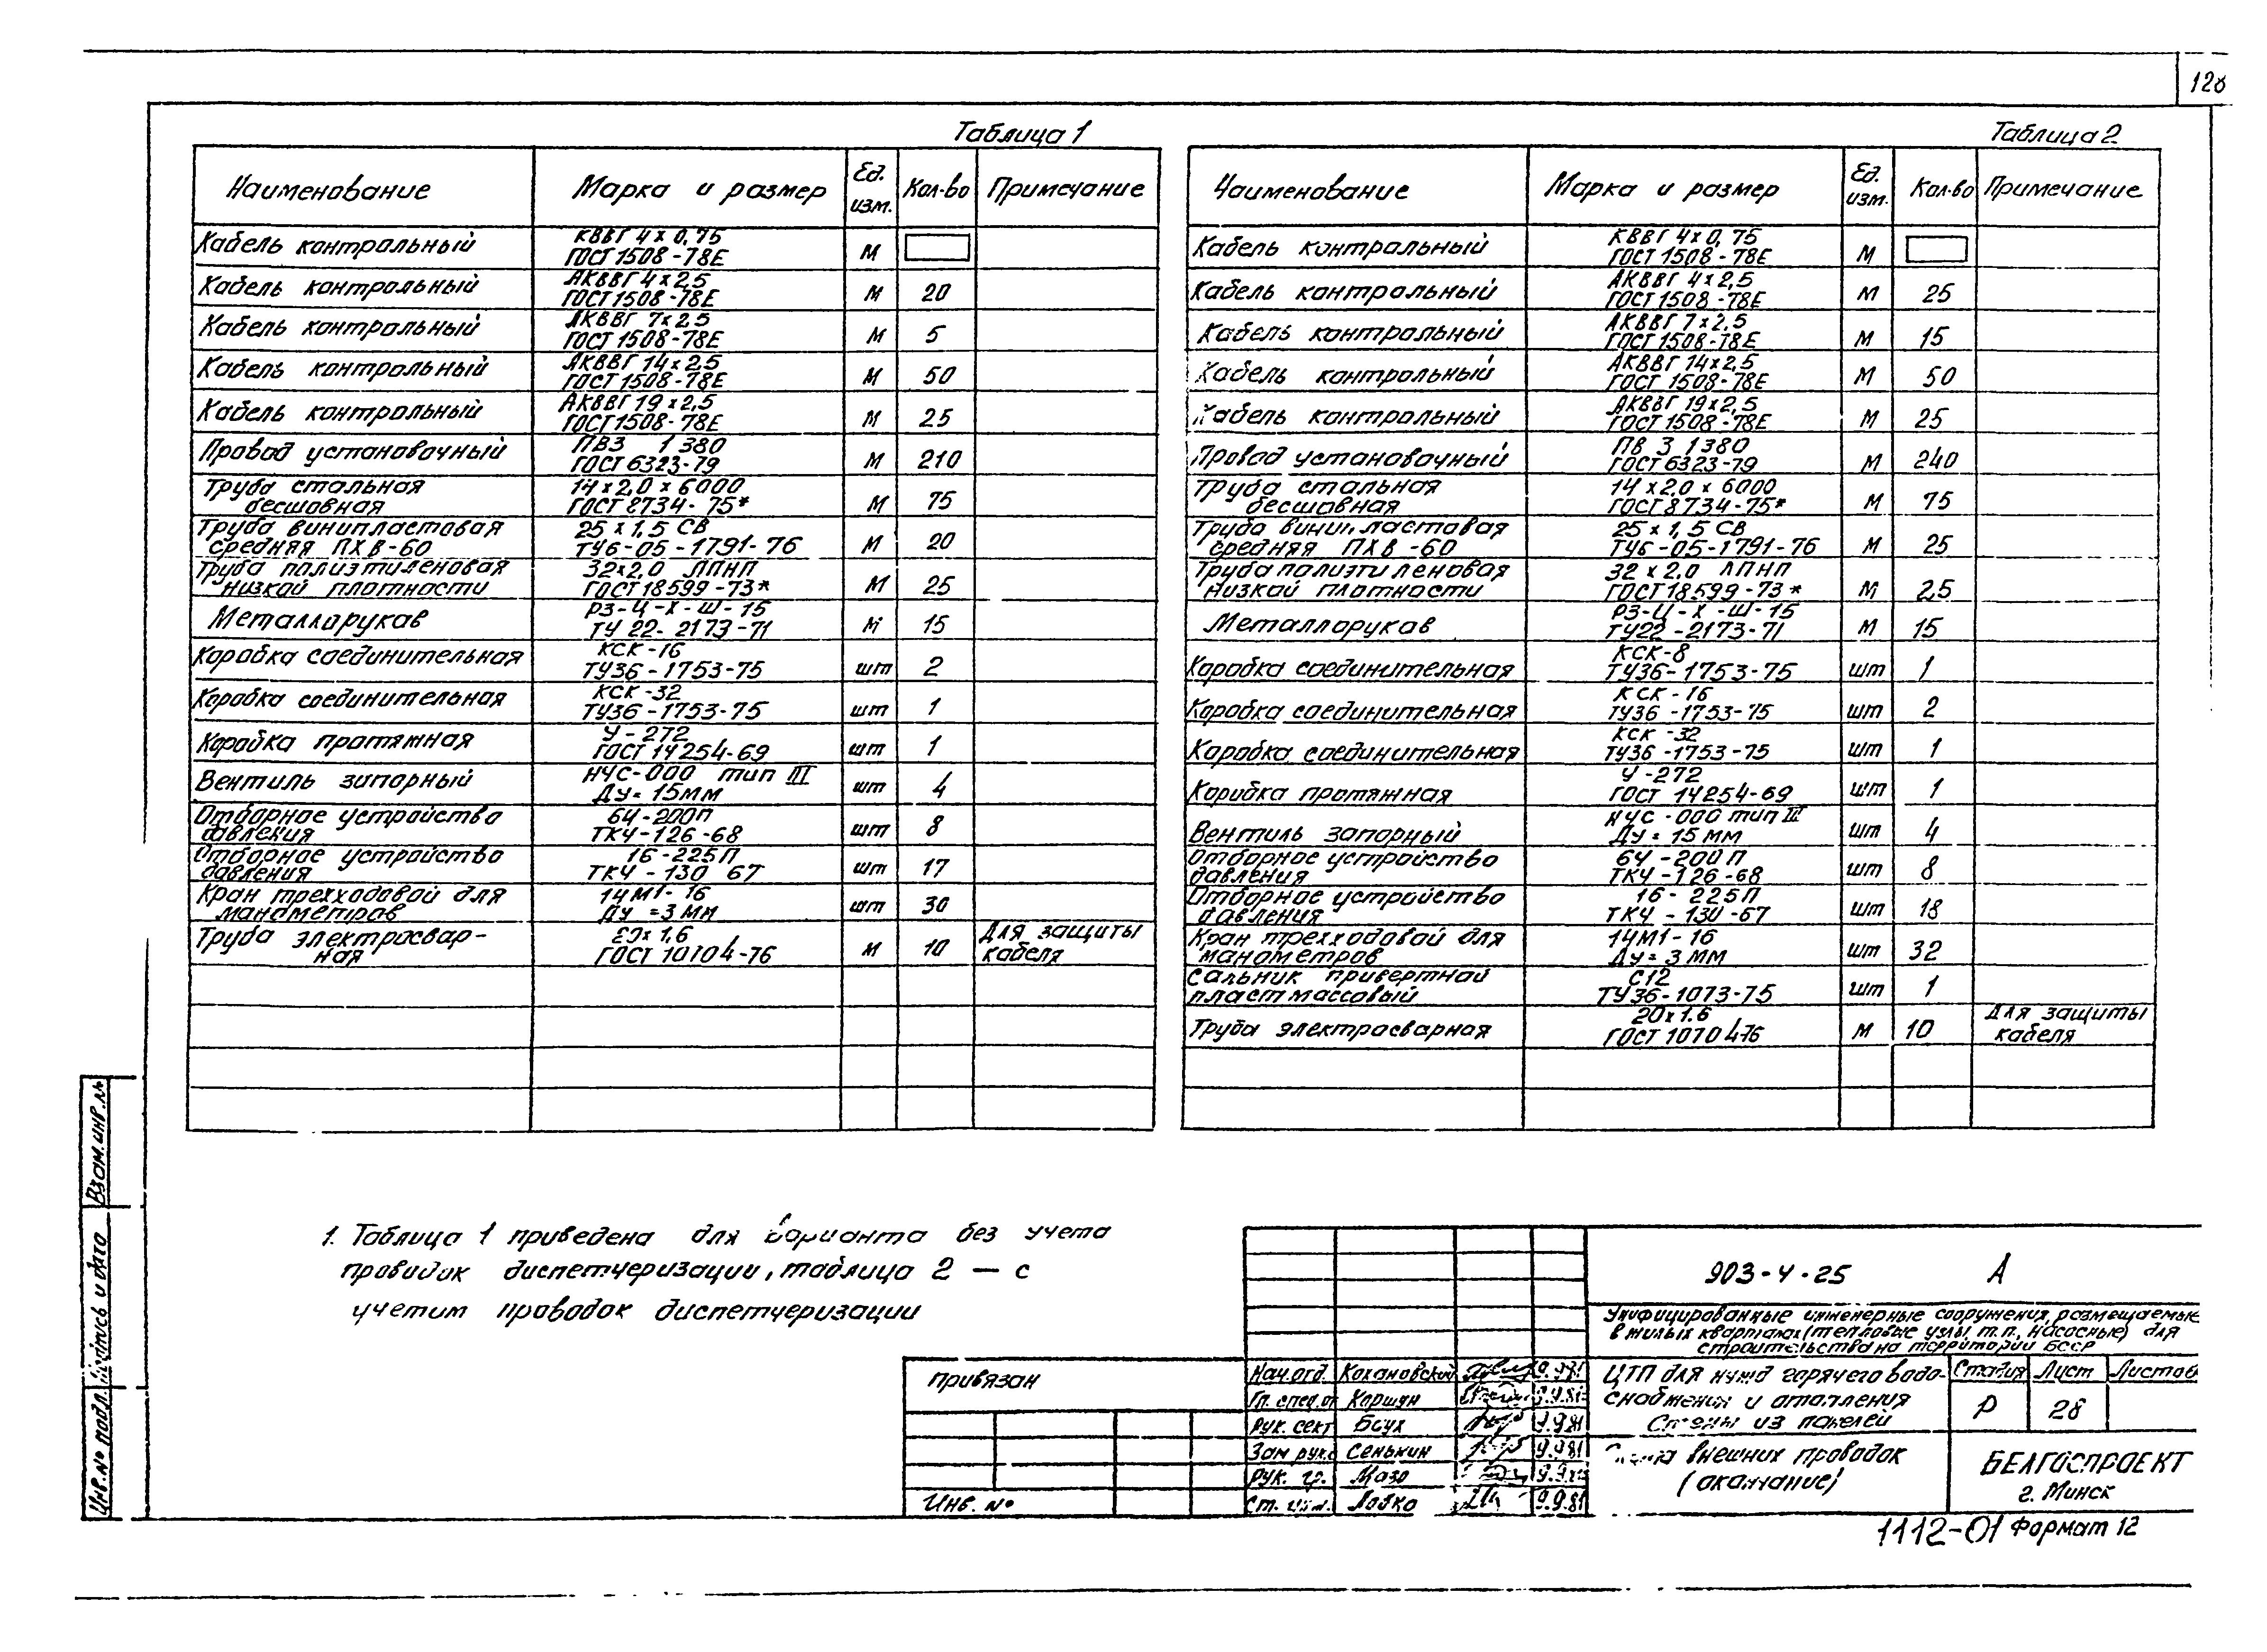 128
Таблица 1
Наименование Марка и размер Ед. изм. Кол-во Примечание
Кабель контрольный КВВГ 4х0,75 ГОСТ 1508-78Е м
Кабель контрольный АКВВГ 4х2,5 ГОСТ 1508-78Е м 20
Кабель контрольный АКВВГ 7х2,5 ГОСТ 1508-78Е м 5
Кабель контрольный АКВВГ 14х2,5 ГОСТ 1508-78Е м 50
Кабель контрольный АКВВГ 19х2,5 ГОСТ 1508-78Е м 25
Провод установочный ПВ3 1 380 ГОСТ 6323-79 м 210
Труба стальная бесшовная 14х2,0х6000 ГОСТ 8734-75* м 75
Труба винипластовая средняя ПХВ-60 25х1,5 СВ ТУ6-05-1791-76 м 20
Труба полиэтиленовая низкой плотности 32х2,0 ЛПНП ГОСТ 18599-73* м 25
Металлорукав РЗ-Ц-Х-Ш-15 ТУ 22-2173-71 м 15
Коробка соединительная КСК-16 ТУ36-1753-75 шт 2
Коробка соединительная КСК-32 ТУ36-1753-75 шт 1
Коробка протяжная У-272 ГОСТ 14254-69 шт 1
Вентиль запорный НЧС-000 тип III Ду=15мм шт 4
Отборное устройство давления 64-200П ТКЧ-126-68 шт 8
Отборное устройство давления 16-225П ТКЧ-130 67 шт 17
Кран трехходовой для манометров 14М1-16 Ду=3мм шт 30
Труба электросвар- ная 20х1,6 ГОСТ 10704-76 м 10 Для защиты кабеля
Таблица 2
Наименование Марка и размер Ед. изм. Кол-во Примечание
Кабель контрольный КВВГ 4х0,75 ГОСТ 1508-78Е м
Кабель контрольный АКВВГ 4х2,5 ГОСТ 1508-78Е м 25
Кабель контрольный АКВВГ 7х2,5 ГОСТ 1508-78Е м 15
Кабель контрольный АКВВГ 14х2,5 ГОСТ 1508-78Е м 50
Кабель контрольный АКВВГ 19х2,5 ГОСТ 1508-78Е м 25
Провод установочный ПВ 3 1 380 ГОСТ 6323-79 м 240
Труба стальная бесшовная 14х2,0х6000 ГОСТ 8734-75* м 75
Труба винипластовая средняя ПХВ-60 25х1,5 СВ ТУ6-05-1791-76 м 25
Труба полиэтиленовая низкой плотности 32х2,0 ЛПНП ГОСТ 18599-73* м 2,5
Металлорукав РЗ-Ц-Х-Ш-15 ТУ22-2173-71 м 15
Коробка соединительная КСК-8 ТУ36-1753-75 шт 1
Коробка соединительная КСК-16 ТУ36-1753-75 шт 2
Коробка соединительная КСК-32 ТУ36-1753-75 шт 1
Коробка протяжная У-272 ГОСТ 14254-69 шт 1
Вентиль запорный НЧС-000 тип III Ду=15мм шт 4
Отборное устройство давления 64-200П ТКЧ-126-68 шт 8
Отборное устройство давления 16-225П ТКЧ-130-67 шт 18
Кран трехходовой для манометров 14М1-16 Ду=3мм шт 32
Сальник привертной пластмассовый С12 ТУ36-1073-75 шт 1
Труба электросварная 20х1.6 ГОСТ 10704-76 м 10 Для защиты кабеля
1. Таблица 1 приведена для варианта без учета
проводок диспетчеризации, таблица 2 — с
учетим проводок диспетчеризации
Взам.инв.№
Подпись и дата
Инв.№ подл.
Привязан
Инв. №
903-4-25 А
Унифицированные инженерные сооружения, размещаемые
в жилых кварталах (тепловые узлы, т.п., насосные) для
строительства на территории БССР
Нач.отд. Кохановский 9.9.81
Гл. спец.от Коршун 9.9.81
Рук. сект 9.9.81
Зам рук. Сенькин 9.9.81
Рук. гр. Мазо
Ст. инж. Лойко 9.9.81
ЦТП для нужд горячего водо-
снабжения и отопления
Стены из панелей
Стадия Лист Листов
Р 28
Схема внешних проводок
(окончание)
БЕЛГОСПРОЕКТ
г. Минск
1112-01 Формат 12